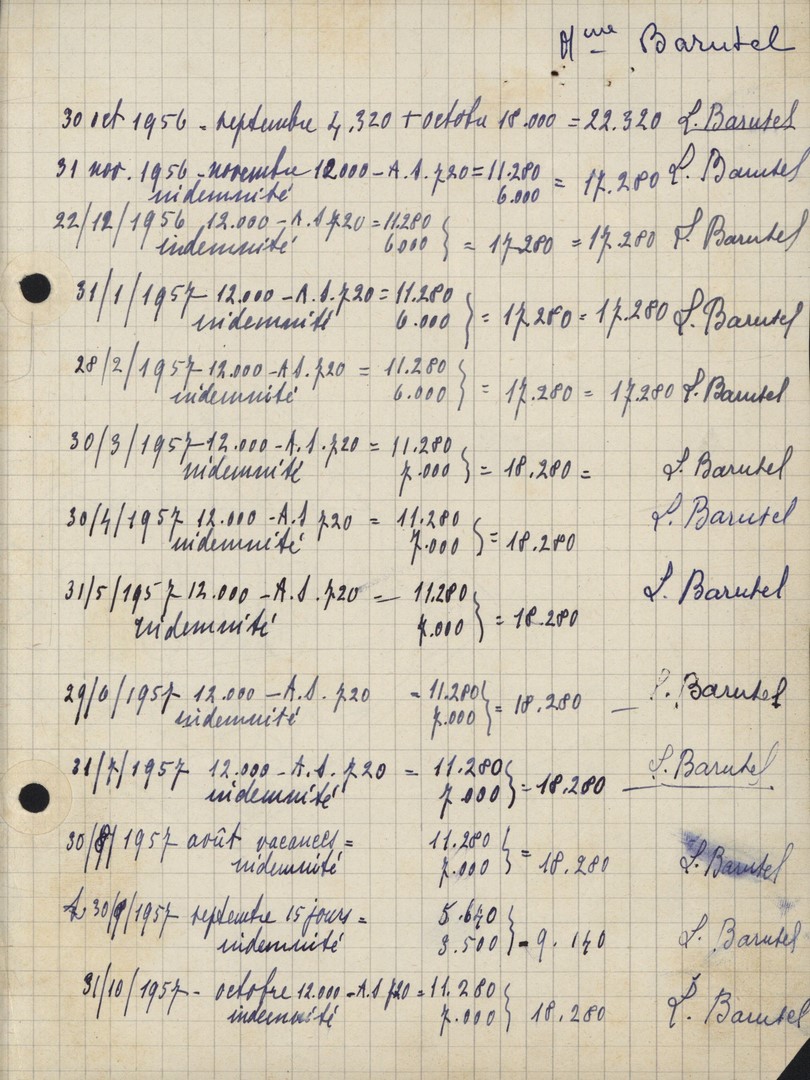 Mme Barutel
30 oct 1956 - septembre 4.320 + octobre 18.000 = 22.320 L. Barutel
31 nov. 1956 - novembre 12.000 - A.S. 720 = 11.280
indemnité 6.000 = 17.280 L. Barutel
22/12/1956 12.000 - A.S 720 = 11.280
indemnité 6.000 } = 17.280 = 17.280 L. Barutel
31/1/1957 - 12.000 - A.S. 720 = 11.280
indemnité 6.000 } = 17.280 = 17.280 L. Barutel
28/2/1957 - 12.000 - A.S. 720 = 11.280
indemnité 6.000 } = 17.280 = 17.280 L. Barutel
30/3/1957 - 12.000 - A.S. 720 = 11.280
indemnité 7.000 } = 18.280 = L. Barutel
30/4/1957 12.000 - A.S 720 = 11.280
indemnité 7.000 } = 18.280 L. Barutel
31/5/1957 12.000 - A.S. 720 = 11.280
indemnité 7.000 } = 18.280 L. Barutel
29/6/1957 12.000 - A.S. 720 = 11.280
indemnité 7.000 } = 18.280 — L. Barutel
31/7/1957 12.000 - A.S. 720 = 11.280
indemnité 7.000 } = 18.280 L. Barutel
30/8/1957 août vacances = 11.280
indemnité 7.000 } = 18.280 L. Barutel
30/9/1957 septembre 15 jours = 5.640
indemnité 3.500 } = 9.140 L. Barutel
31/10/1957 - octobre 12.000 - A.S 720 = 11.280
indemnité 7.000 } 18.280 L. Barutel